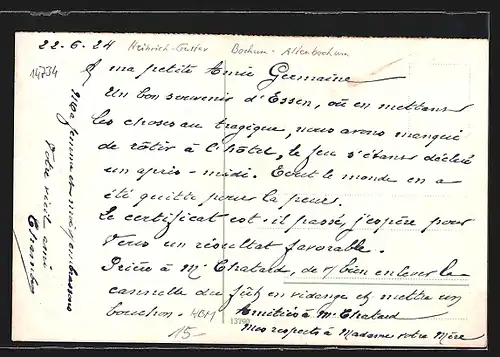 22-6-24 Heinrich-Gustav Bochum-Altenbochum
14734
ma petite Amie Germaine
Un bon souvenir d'Essen, où en mettans
les choses au tragique, nous avons manqué
de rôtir à l'hôtel, le feu s'étans déclaré
un après-midi. Tout le monde en a
été quitte pour la peur.
Le certificat est-il passé, j'espère pour
Vous un résultat favorable.
Prière à Mr Chatard, de bien enlever la
cannelle du fût en vidange et mettre un
bouchon - Amitiés à Mr Chatard
Mes respects à Madame votre Mère
Ma femme et moi, vous embrassons
Votre vieil ami
15-
13790